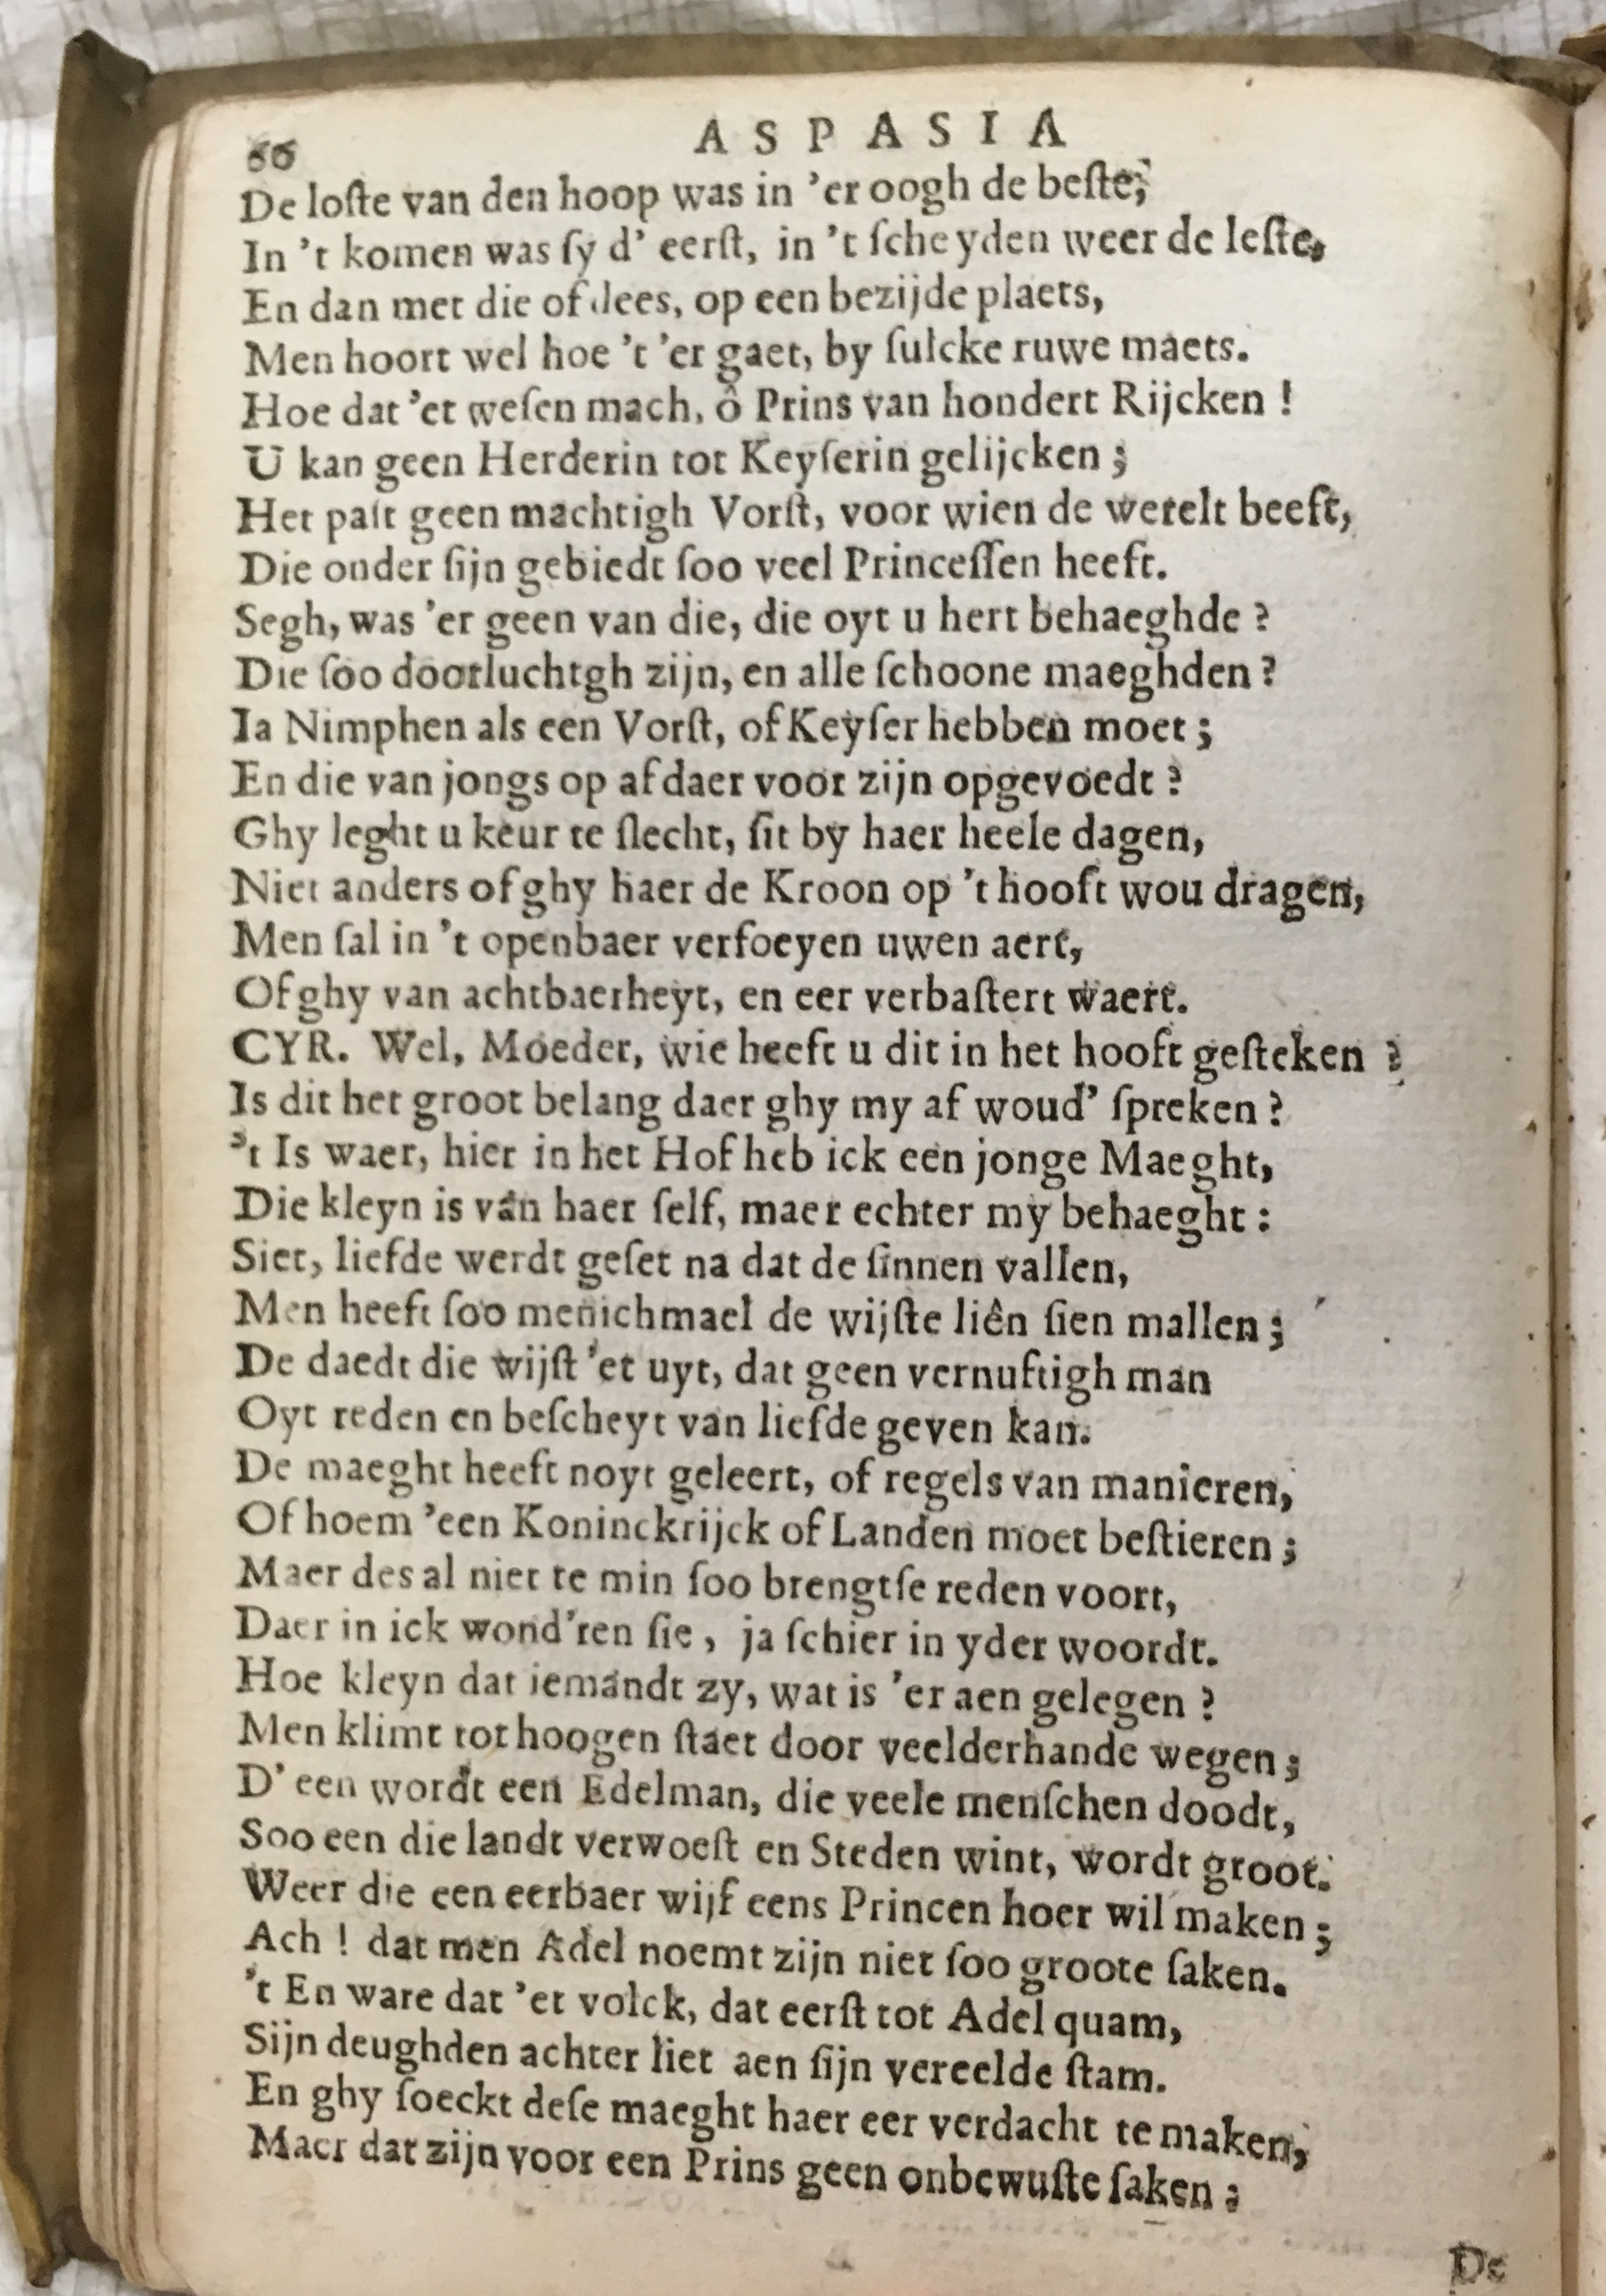 66 ASPASIA
De loſte van den hoop was in 'er oogh de beſte;
In 't komen was ſy d' eerſt, in 't ſcheyden weer de leſte,
En dan met die of dees, op een bezijde plaets,
Men hoort wel hoe 't 'er gaet, by ſulcke ruwe maets.
Hoe dat 'et weſen mach, ô Prins van hondert Rijcken !
U kan geen Herderin tot Keyſerin gelijcken ;
Het paſt geen machtigh Vorſt, voor wien de werelt beeft,
Die onder ſijn gebiedt ſoo veel Princeſſen heeft.
Segh, was 'er geen van die, die oyt u hert behaeghde ?
Die ſoo doorluchtgh zijn, en alle ſchoone maeghden ?
Ia Nimphen als een Vorſt, of Keyſer hebben moet ;
En die van jongs op af daer voor zijn opgevoedt ?
Ghy leght u keur te ſlecht, ſit by haer heele dagen,
Niet anders of ghy haer de Kroon op 't hooft wou dragen,
Men ſal in 't openbaer verfoeyen uwen aert,
Of ghy van achtbaerheyt, en eer verbaſtert waert.
CYR. Wel, Moeder, wie heeft u dit in het hooft geſteken ?
Is dit het groot belang daer ghy my af woud' ſpreken ?
't Is waer, hier in het Hof heb ick een jonge Maeght,
Die kleyn is van haer ſelf, maer echter my behaeght :
Siet, liefde werdt geſet na dat de ſinnen vallen,
Men heeft ſoo menichmael de wijſte liên ſien mallen ;
De daedt die wijſt 'et uyt, dat geen vernuftigh man
Oyt reden en beſcheyt van liefde geven kan.
De maeght heeft noyt geleert, of regels van manieren,
Of hoem 'een Koninckrijck of Landen moet beſtieren ;
Maer des al niet te min ſoo brengtſe reden voort,
Daer in ick wond'ren ſie , ja ſchier in yder woordt.
Hoe kleyn dat iemandt zy, wat is 'er aen gelegen ?
Men klimt tot hoogen ſtaet door veelderhande wegen ;
D' een wordt een Edelman, die veele menſchen doodt,
Soo een die landt verwoeſt en Steden wint, wordt groot.
Weer die een eerbaer wijf eens Princen hoer wil maken ;
Ach ! dat men Adel noemt zijn niet ſoo groote ſaken.
't En ware dat 'et volck, dat eerſt tot Adel quam,
Sijn deughden achter liet aen ſijn vereelde ſtam.
En ghy ſoeckt deſe maeght haer eer verdacht te maken,
Maer dat zijn voor een Prins geen onbewuſte ſaken ;
De